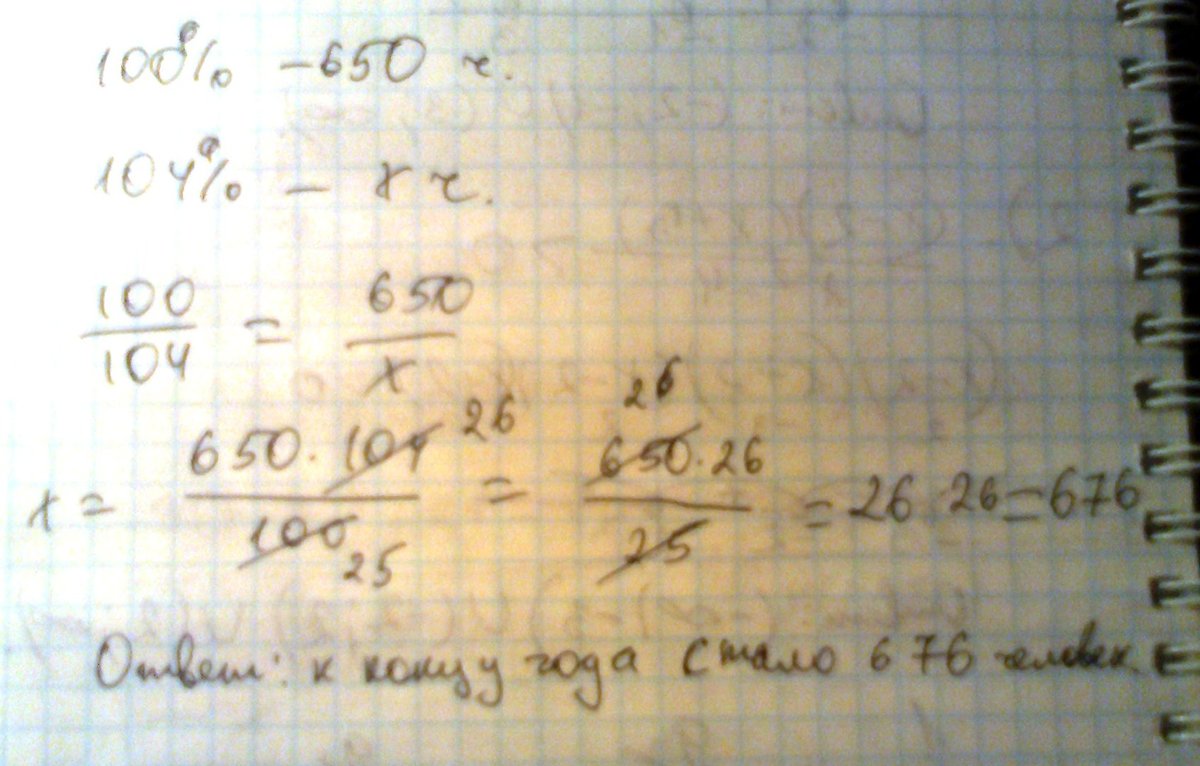 100% – 650 ч.
104% – x ч.
100/104 = 650/x
x = 650 · 104 26 / 100 25 = 26 650 · 26 / 25 = 26 26 = 676
Ответ: к концу года стало 676 человек.